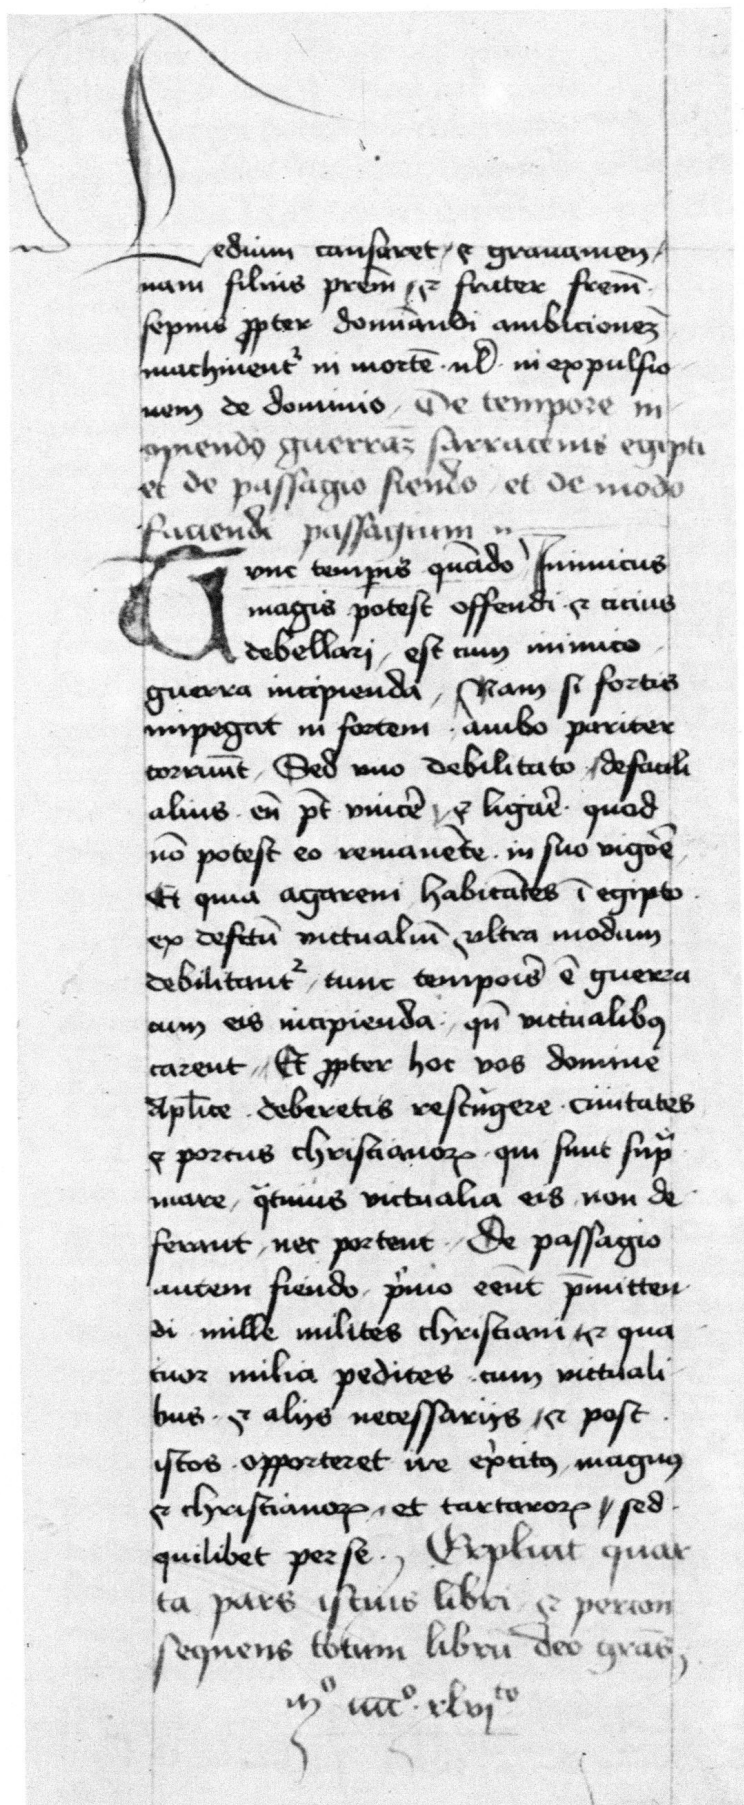 Tedium causaret / et grauamen /
nam filius pr̄em / et frater fr̄em
sepius ꝓpter dominandi ambicionez
machinentᷣ in mortē · vl̄ · in expulsio
nem de dominio / De tempore in
guerraʒ sarracenis egipti
et de passagio fiendo et de modo
faciendi passagium
Tunc temporis quādo Inimicus
magis potest offendi · et cicius
debellari / est cum inimico /
guerra incipienda / Nam si fortis
impegat in fortem · ambo pariter
corruūt / Sed vno debilitato / defacili
alius · eū pt̄ vincēr / et ligāre · quod
nō potest eo remanēte · in suo vigōre
Et quia agareni habitātes ī egipto ·
ex defctū victualiū / vltra modum
debilitantᷣ / tunc temporis ē guerra
cum eis incipienda / qn̄ victualibꝯ
carent // Et ꝓpter hoc vos domine
Apl̄ice · deberetis rescͥgere · ciuitates
et portus christianoꝝ · qui sunt supͣ
mare / qͣtinus victualia eis non de
ferant / nec portent // De passagio
autem fiendo / pͥmo eēnt p̄mitten
di mille milites christiani / et qua
tuor milia pedites · cum victuali
bus · et alijs necessarijs / et post ·
istos · opporteret ire exͥcitꝯ magnꝯ
et christianoꝝ / et tartaroꝝ // sed ·
quilibet per se · / Explicit quar
ta pars istius libri / et per con
sequens totum librū deo grās /
mº iiiicº · xlvjto